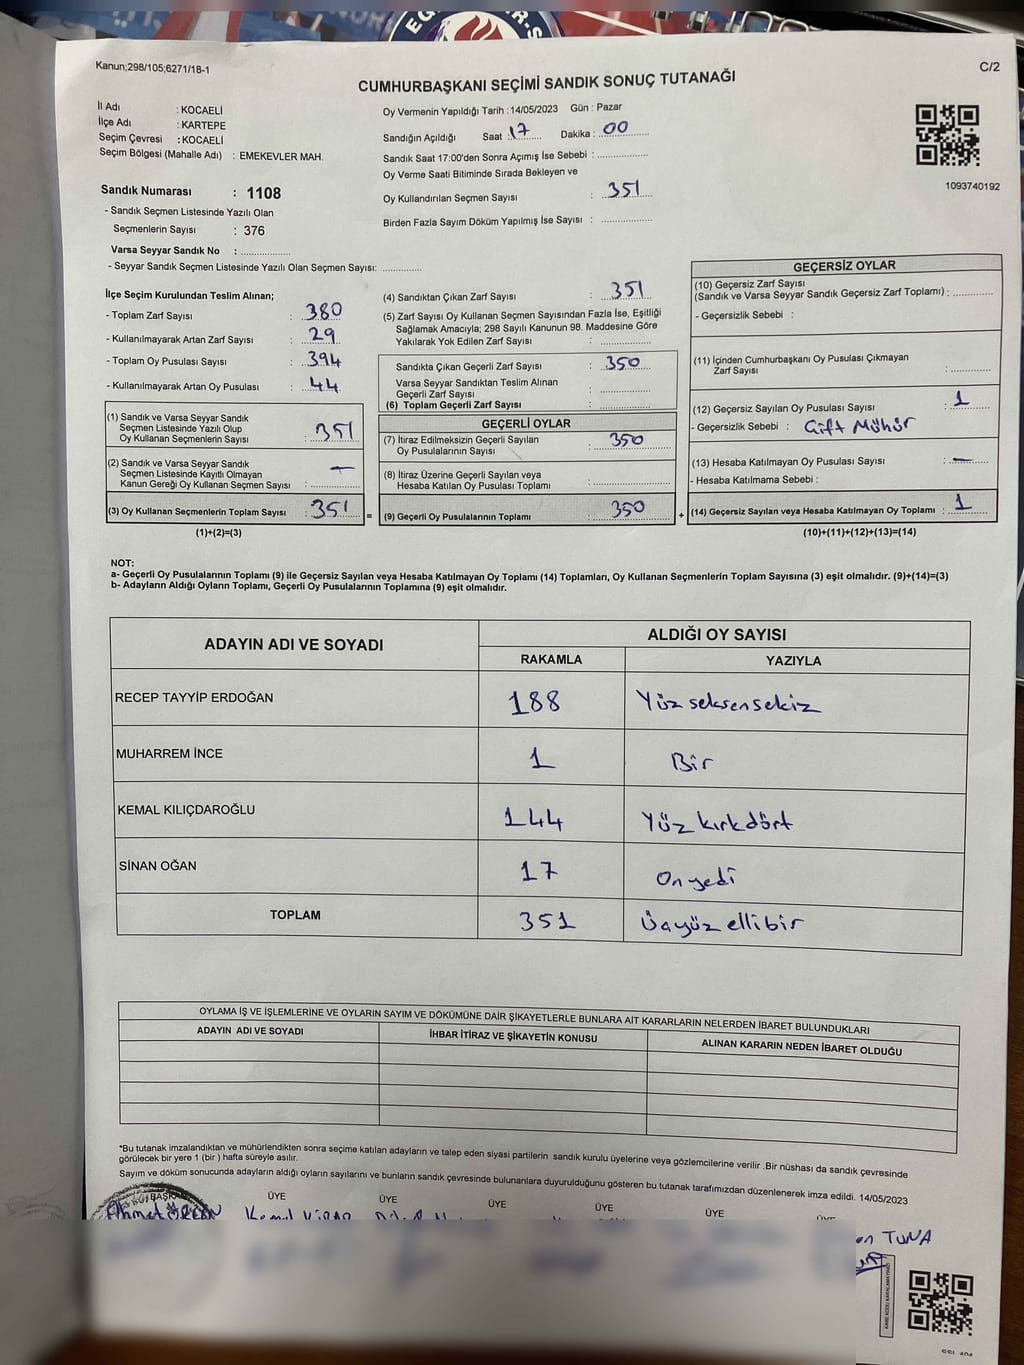 Kanun;298/105;6271/18-1
C/2
CUMHURBAŞKANI SEÇİMİ SANDIK SONUÇ TUTANAĞI
İl Adı : KOCAELİ
İlçe Adı : KARTEPE
Seçim Çevresi : KOCAELİ
Seçim Bölgesi (Mahalle Adı) : EMEKEVLER MAH.
Sandık Numarası : 1108
- Sandık Seçmen Listesinde Yazılı Olan
Seçmenlerin Sayısı : 376
Varsa Seyyar Sandık No : ..................
- Seyyar Sandık Seçmen Listesinde Yazılı Olan Seçmen Sayısı: ..............
Oy Vermenin Yapıldığı Tarih : 14/05/2023 Gün : Pazar
Sandığın Açıldığı Saat : 17 Dakika : 00
Sandık Saat 17:00'den Sonra Açımış İse Sebebi : ..................
Oy Verme Saati Bitiminde Sırada Bekleyen ve
Oy Kullandırılan Seçmen Sayısı : 351
Birden Fazla Sayım Döküm Yapılmış İse Sayısı : ..................
1093740192
İlçe Seçim Kurulundan Teslim Alınan;
- Toplam Zarf Sayısı : 380
- Kullanılmayarak Artan Zarf Sayısı : 29
- Toplam Oy Pusulası Sayısı : 394
- Kullanılmayarak Artan Oy Pusulası : 44
(1) Sandık ve Varsa Seyyar Sandık
Seçmen Listesinde Yazılı Olup
Oy Kullanan Seçmenlerin Sayısı : 351
(2) Sandık ve Varsa Seyyar Sandık
Seçmen Listesinde Kayıtlı Olmayan
Kanun Gereği Oy Kullanan Seçmen Sayısı : —
(3) Oy Kullanan Seçmenlerin Toplam Sayısı : 351 =
(1)+(2)=(3)
(4) Sandıktan Çıkan Zarf Sayısı : 351
(5) Zarf Sayısı Oy Kullanan Seçmen Sayısından Fazla İse, Eşitliği
Sağlamak Amacıyla; 298 Sayılı Kanunun 98. Maddesine Göre
Yakılarak Yok Edilen Zarf Sayısı : ..................
Sandıkta Çıkan Geçerli Zarf Sayısı : 350
Varsa Seyyar Sandıktan Teslim Alınan
Geçerli Zarf Sayısı : ..................
(6) Toplam Geçerli Zarf Sayısı : ..................
GEÇERLİ OYLAR
(7) İtiraz Edilmeksizin Geçerli Sayılan
Oy Pusulalarının Sayısı : 350
(8) İtiraz Üzerine Geçerli Sayılan veya
Hesaba Katılan Oy Pusulası Toplamı : ..................
(9) Geçerli Oy Pusulalarının Toplamı : 350 +
GEÇERSİZ OYLAR
(10) Geçersiz Zarf Sayısı
(Sandık ve Varsa Seyyar Sandık Geçersiz Zarf Toplamı) : ............
- Geçersizlik Sebebi :
(11) İçinden Cumhurbaşkanı Oy Pusulası Çıkmayan
Zarf Sayısı : ............
(12) Geçersiz Sayılan Oy Pusulası Sayısı : 1
- Geçersizlik Sebebi : Çift Mühür
(13) Hesaba Katılmayan Oy Pusulası Sayısı : —
- Hesaba Katılmama Sebebi :
(14) Geçersiz Sayılan veya Hesaba Katılmayan Oy Toplamı : 1
(10)+(11)+(12)+(13)=(14)
NOT:
a- Geçerli Oy Pusulalarının Toplamı (9) ile Geçersiz Sayılan veya Hesaba Katılmayan Oy Toplamı (14) Toplamları, Oy Kullanan Seçmenlerin Toplam Sayısına (3) eşit olmalıdır. (9)+(14)=(3)
b- Adayların Aldığı Oyların Toplamı, Geçerli Oy Pusulalarının Toplamına (9) eşit olmalıdır.
ADAYIN ADI VE SOYADI ALDIĞI OY SAYISI
RAKAMLA YAZIYLA
RECEP TAYYİP ERDOĞAN 188 Yüz seksen sekiz
MUHARREM İNCE 1 Bir
KEMAL KILIÇDAROĞLU 144 Yüz kırk dört
SİNAN OĞAN 17 On yedi
TOPLAM 351 Üçyüz elli bir
OYLAMA İŞ VE İŞLEMLERİNE VE OYLARIN SAYIM VE DÖKÜMÜNE DAİR ŞİKAYETLERLE BUNLARA AİT KARARLARIN NELERDEN İBARET BULUNDUKLARI
ADAYIN ADI VE SOYADI İHBAR İTİRAZ VE ŞİKAYETİN KONUSU ALINAN KARARIN NEDEN İBARET OLDUĞU
*Bu tutanak imzalandıktan ve mühürlendikten sonra seçime katılan adayların ve talep eden siyasi partilerin sandık kurulu üyelerine veya gözlemcilerine verilir .Bir nüshası da sandık çevresinde
görülecek bir yere 1 (bir ) hafta süreyle asılır.
Sayım ve döküm sonucunda adayların aldığı oyların sayılarını ve bunların sandık çevresinde bulunanlara duyurulduğunu gösteren bu tutanak tarafımızdan düzenlenerek imza edildi. 14/05/2023
BAŞKAN ÜYE ÜYE ÜYE ÜYE ÜYE ÜYE
Ahmet Kemal
TUNA